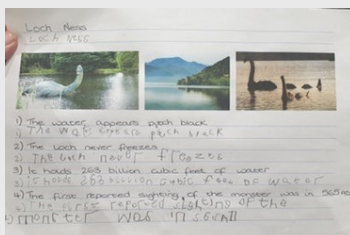 Loch Ness
Loch Ness
1) The water appears pitch black
1) The wat appears pitch black
2) The Loch never freezes
2) The Loch never freezes
3) It holds 263 billion cubic feet of water
3) It holds 263 billion cubic feet of water
4) The first reported sighting of the monster was in 565AD
4) The first reported sighting of the
monster was in 565AD